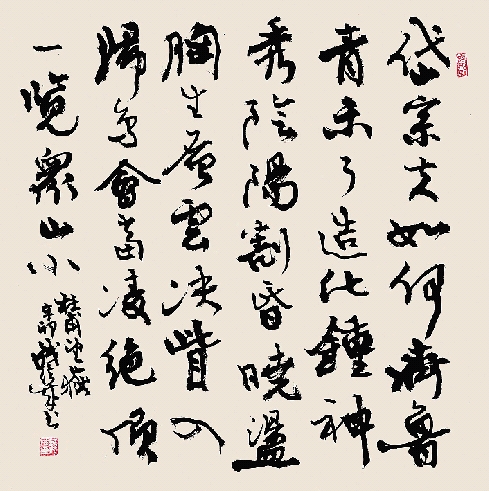 岱宗夫如何齊魯
青未了造化鍾神
秀陰陽割昏曉盪
胸生層雲决眥入
歸鳥會當凌絶頂
一覽眾山小
杜甫望嶽
辛卯